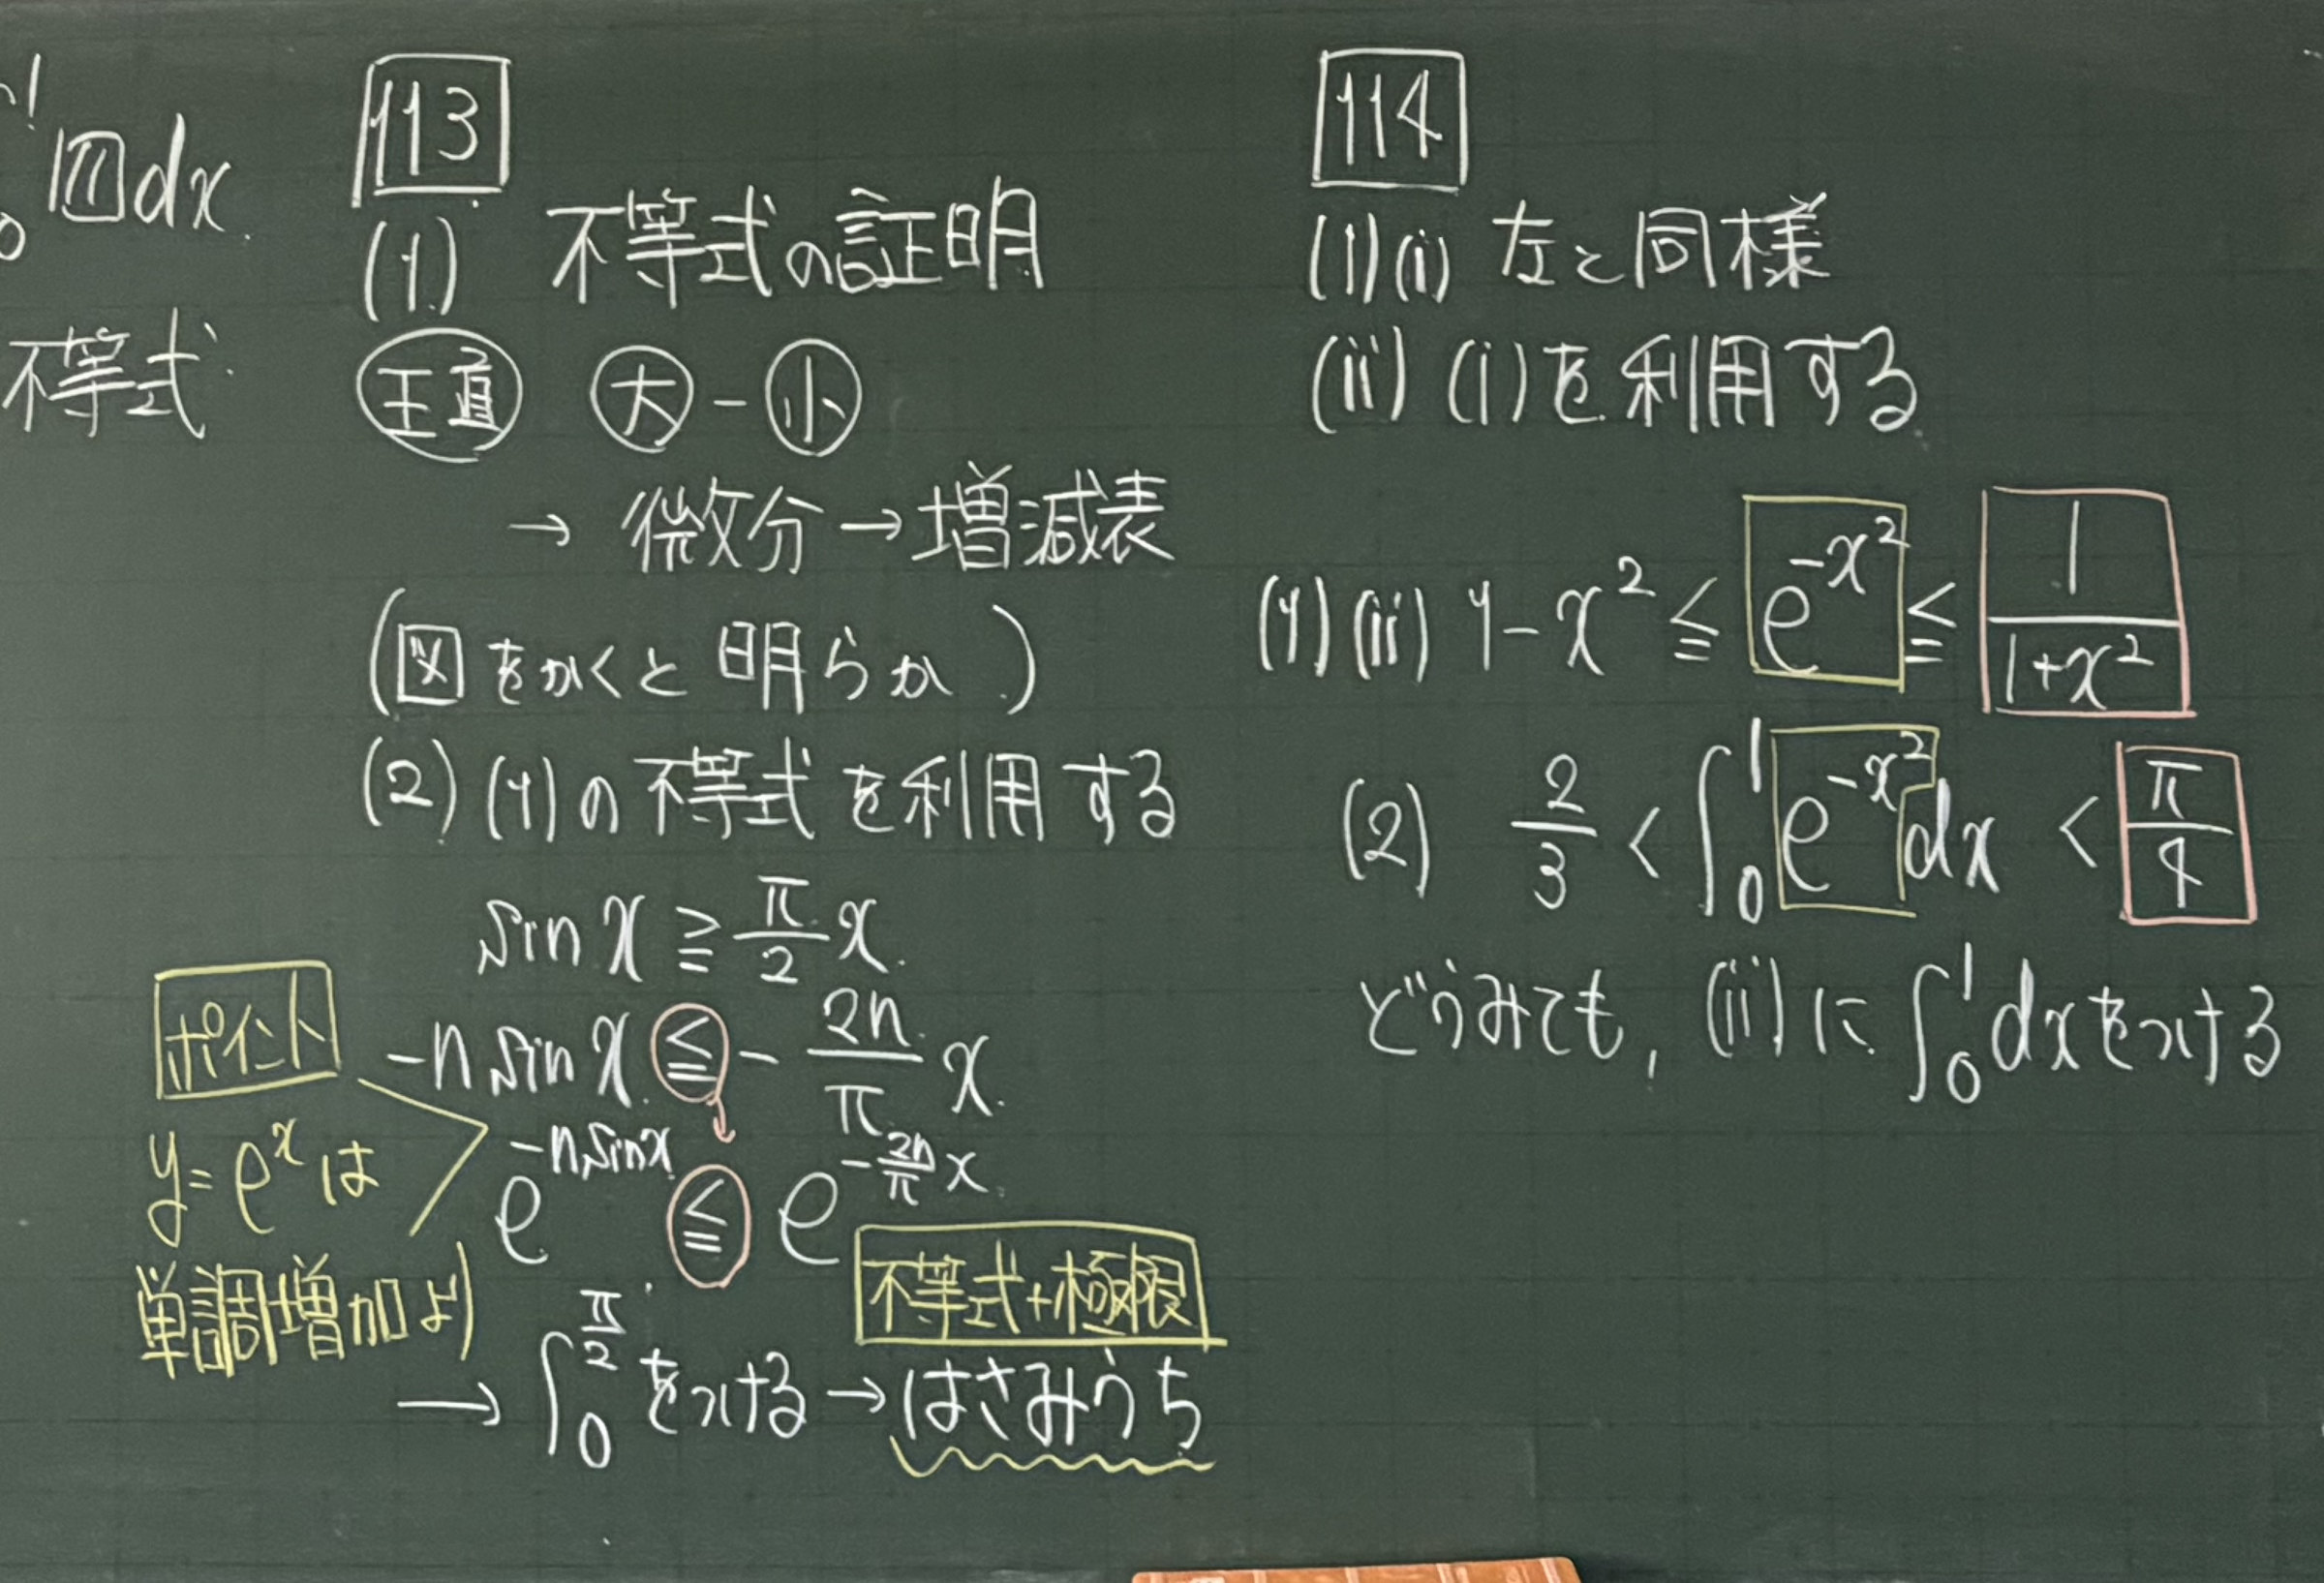 dx
不等式
113
(1) 不等式の証明
王道 大 - 小
→ 微分 → 増減表
(図をかくと明らか)
(2) (1)の不等式を利用する
sin x ≧ π/2 x
-n sin x ≦ - 2n/π x
e^{-n sin x} ≦ e^{-2n/π x}
ポイント
y = e^x は
単調増加より
不等式+極限
→ ∫_0^{π/2} をつける → はさみうち
114
(1)(i) 左と同様
(ii) (i)を利用する
(1)(ii) 1 - x^2 ≦ e^{-x^2} ≦ 1/(1+x^2)
(2) 2/3 < ∫_0^1 e^{-x^2} dx < π/4
どうみても, (ii)に ∫_0^1 dxをつける